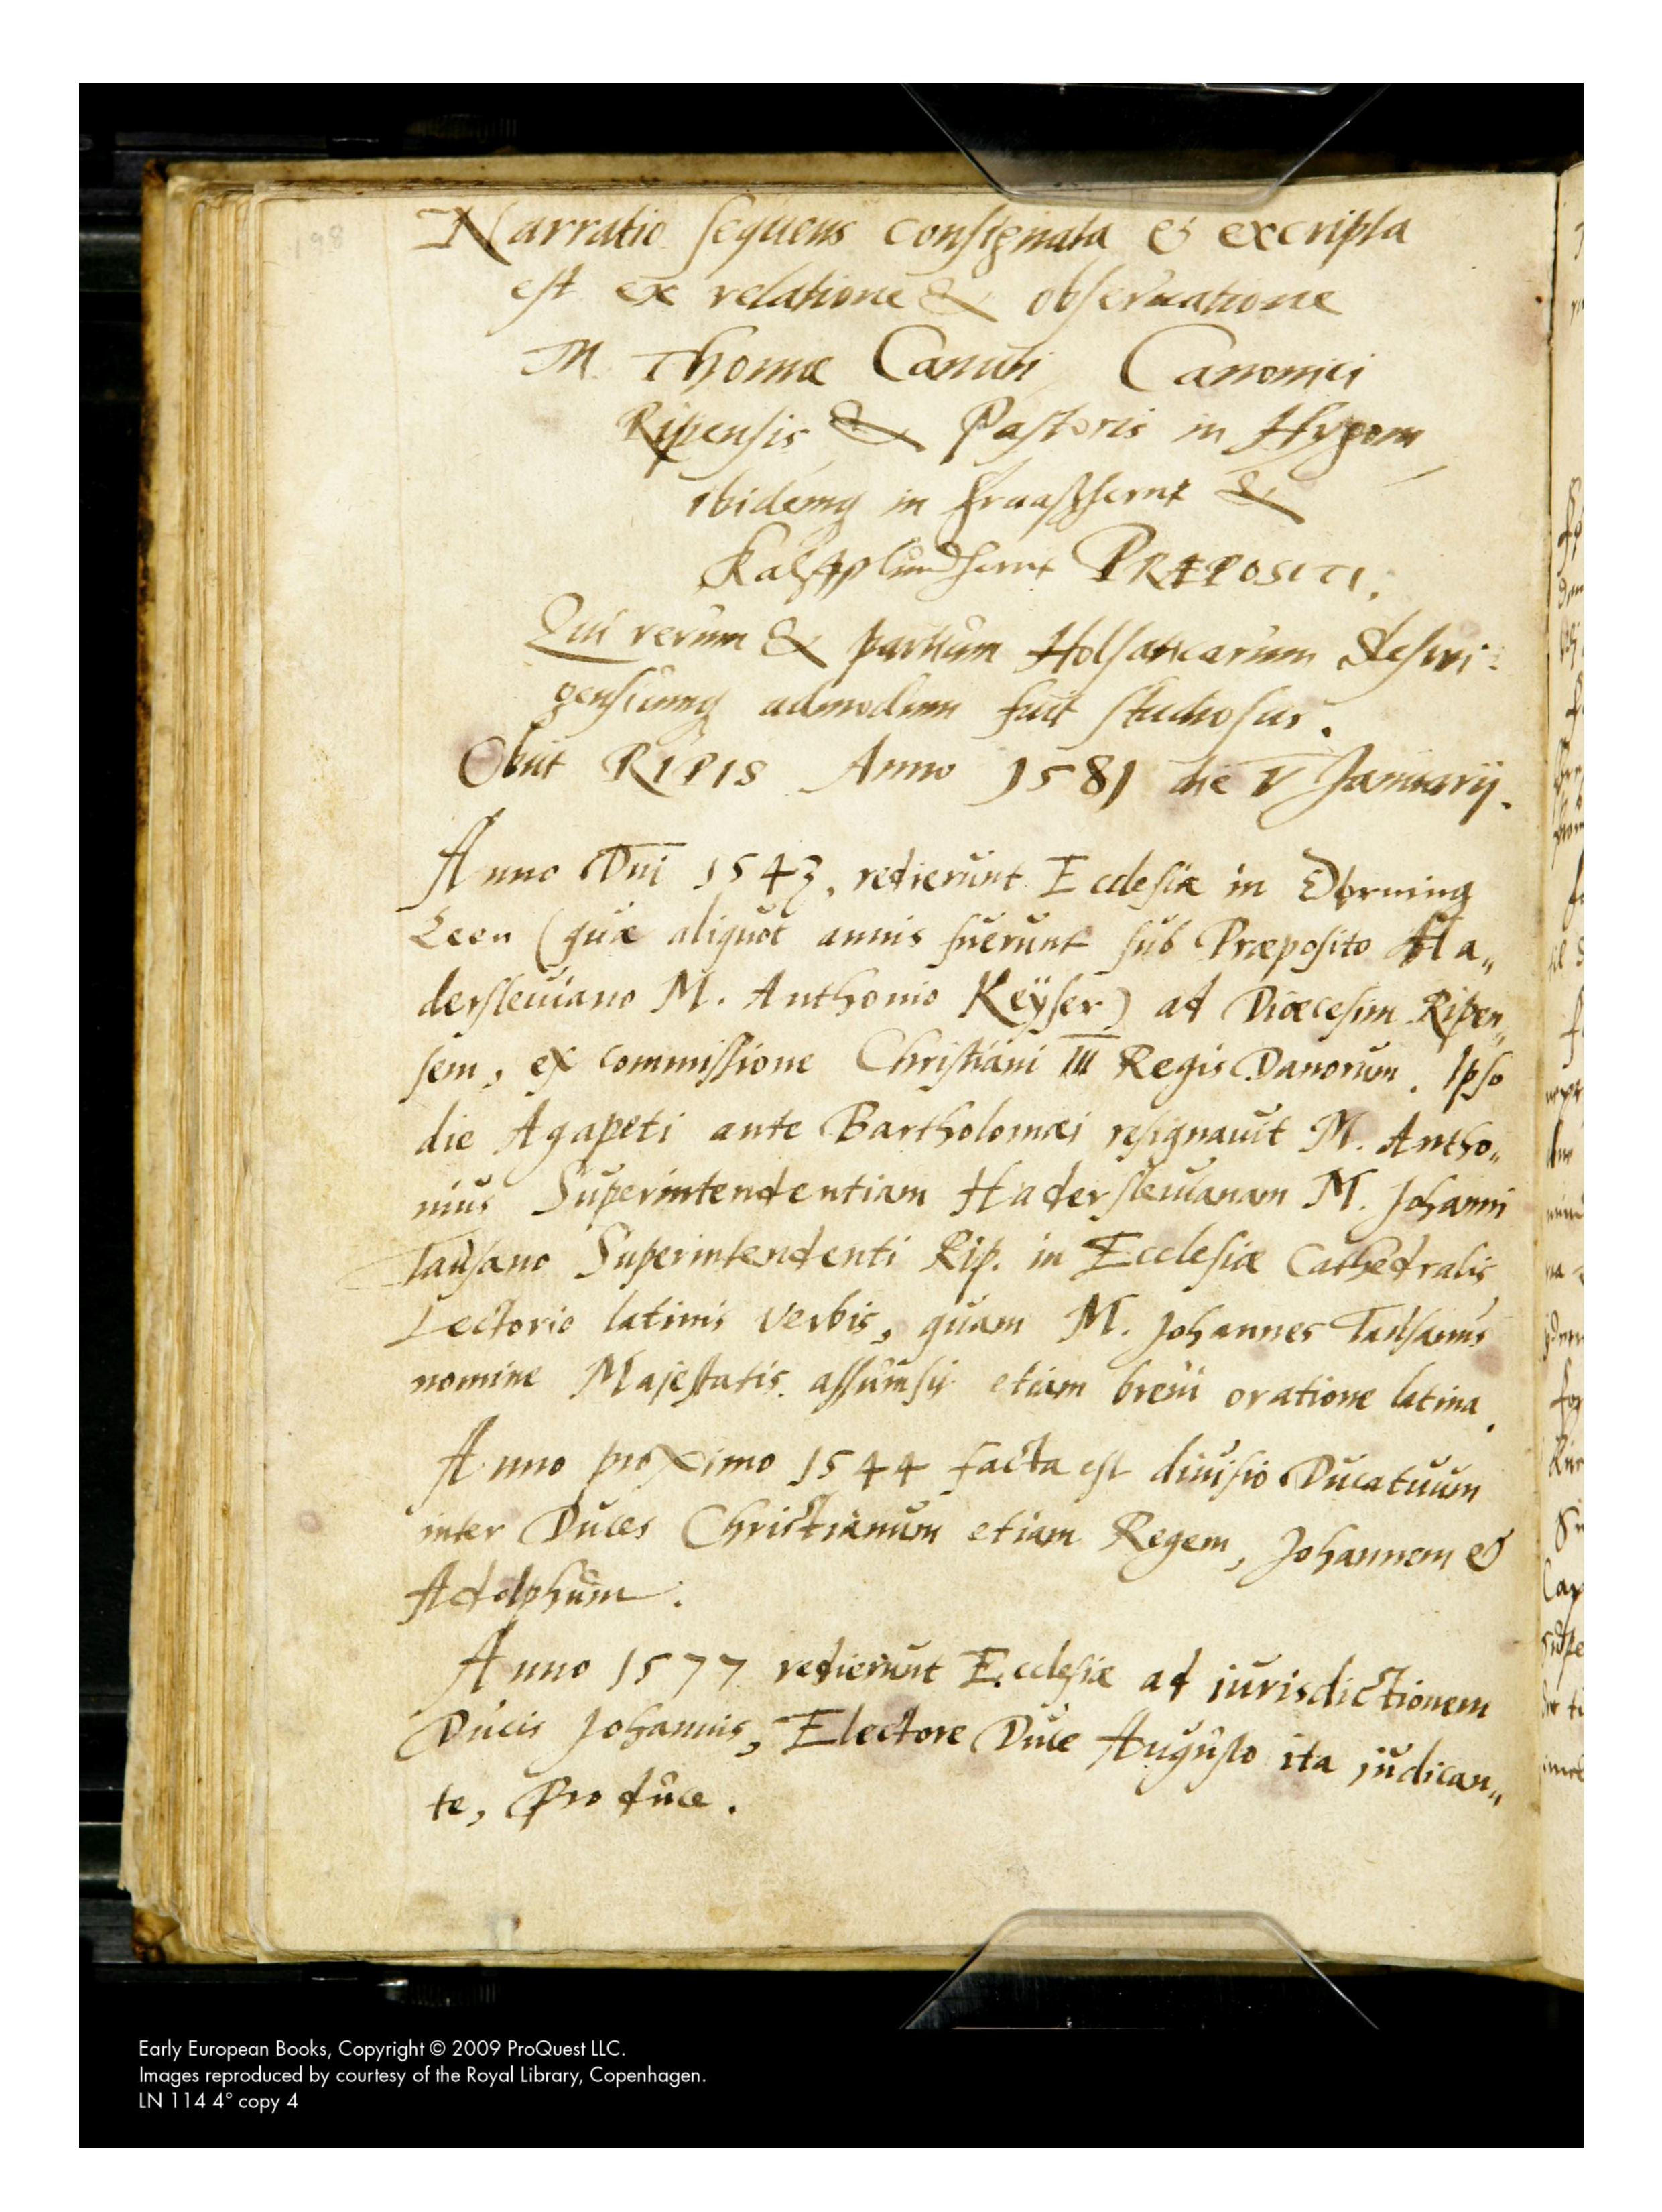 198
Narratio sequens consignata & excripta
est ex relatione & obseruatione
M. Thomæ Canuti Canonici
Ripensis & Pastoris in Hygom
ibidemq in Fraasherrit &
Kalslundherrit PRÆPOSITI.
Qui rerum & partium Holsaticarum Sleswi:
gensiumq admodum fuit studiosus.
Obiit RIPIS Anno 1581 die V Januarij.
Anno Dni 1543. redierunt Ecclesiæ in Dörning
Leen (quæ aliquot annis fuerunt sub Præposito Ha„
dersleuiano M. Anthonio Keÿser) ad Diœcesim Ripen„
sem, ex commissione Christiani III Regis Danorum. Ipso
die Agapeti ante Bartholomæi resignauit M. Antho„
nius Superintendentiam Hadersleuianam M. Johanni
Tausano Superintendenti Rip. in Ecclesiæ Cathedralis
Lectorio latinis verbis, quam M. Johannes Tausanus
nomine Majestatis assumsit etiam breui oratione latina.
Anno proximo 1544 facta est diuisio Ducatuum
inter Duces Christianum etiam Regem, Johannem &
Adolphum.
Anno 1577 redierunt Ecclesiæ ad iurisdictionem
Ducis Johannis, Electore Duce Augusto ita judican„
te, pro duce.
Early European Books, Copyright © 2009 ProQuest LLC.
Images reproduced by courtesy of the Royal Library, Copenhagen.
LN 114 4° copy 4